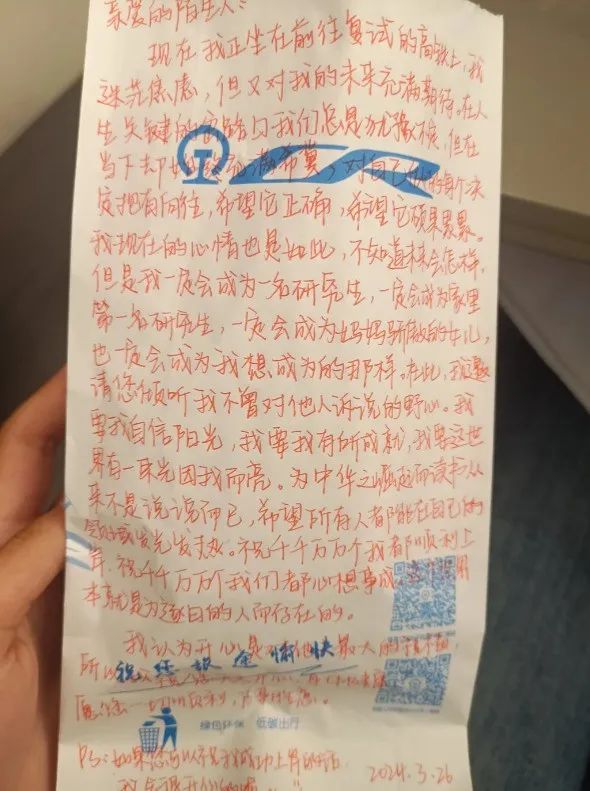 亲爱的陌生人：
现在我正坐在前往复试的高铁上，我
迷茫焦虑，但又对我的未来充满期待。在人
生关键的岔路口我们总是犹豫不决，但在
当下却始终充满希冀，对自己做的每个决
定抱有向往，希望它正确，希望它硕果累累。
我现在的心情也是如此，不知道未来会怎样，
但是我一定会成为一名研究生，一定会成为家里
第一名研究生，一定会成为妈妈骄傲的女儿，
也一定会成为我想成为的那样。在此，我邀
请您倾听我不曾对他人诉说的野心。我
要我自信阳光，我要我有所成就，我要这世
界有一束光因我而亮。为中华之崛起而读书从
来不是说说而已，希望所有人都能在自己的
领域发光发热。祝千千万万个我都顺利上
岸，祝千千万万个我们都心想事成。
本就是为逐日的人而存在的。
我认为开心是对情绪最大的
所以
祝您旅途愉快
愿您一切顺利，
绿色环保 低碳出行
Ps：如果您可以祝我成功上岸的话
我会很开心的
2024.3.26